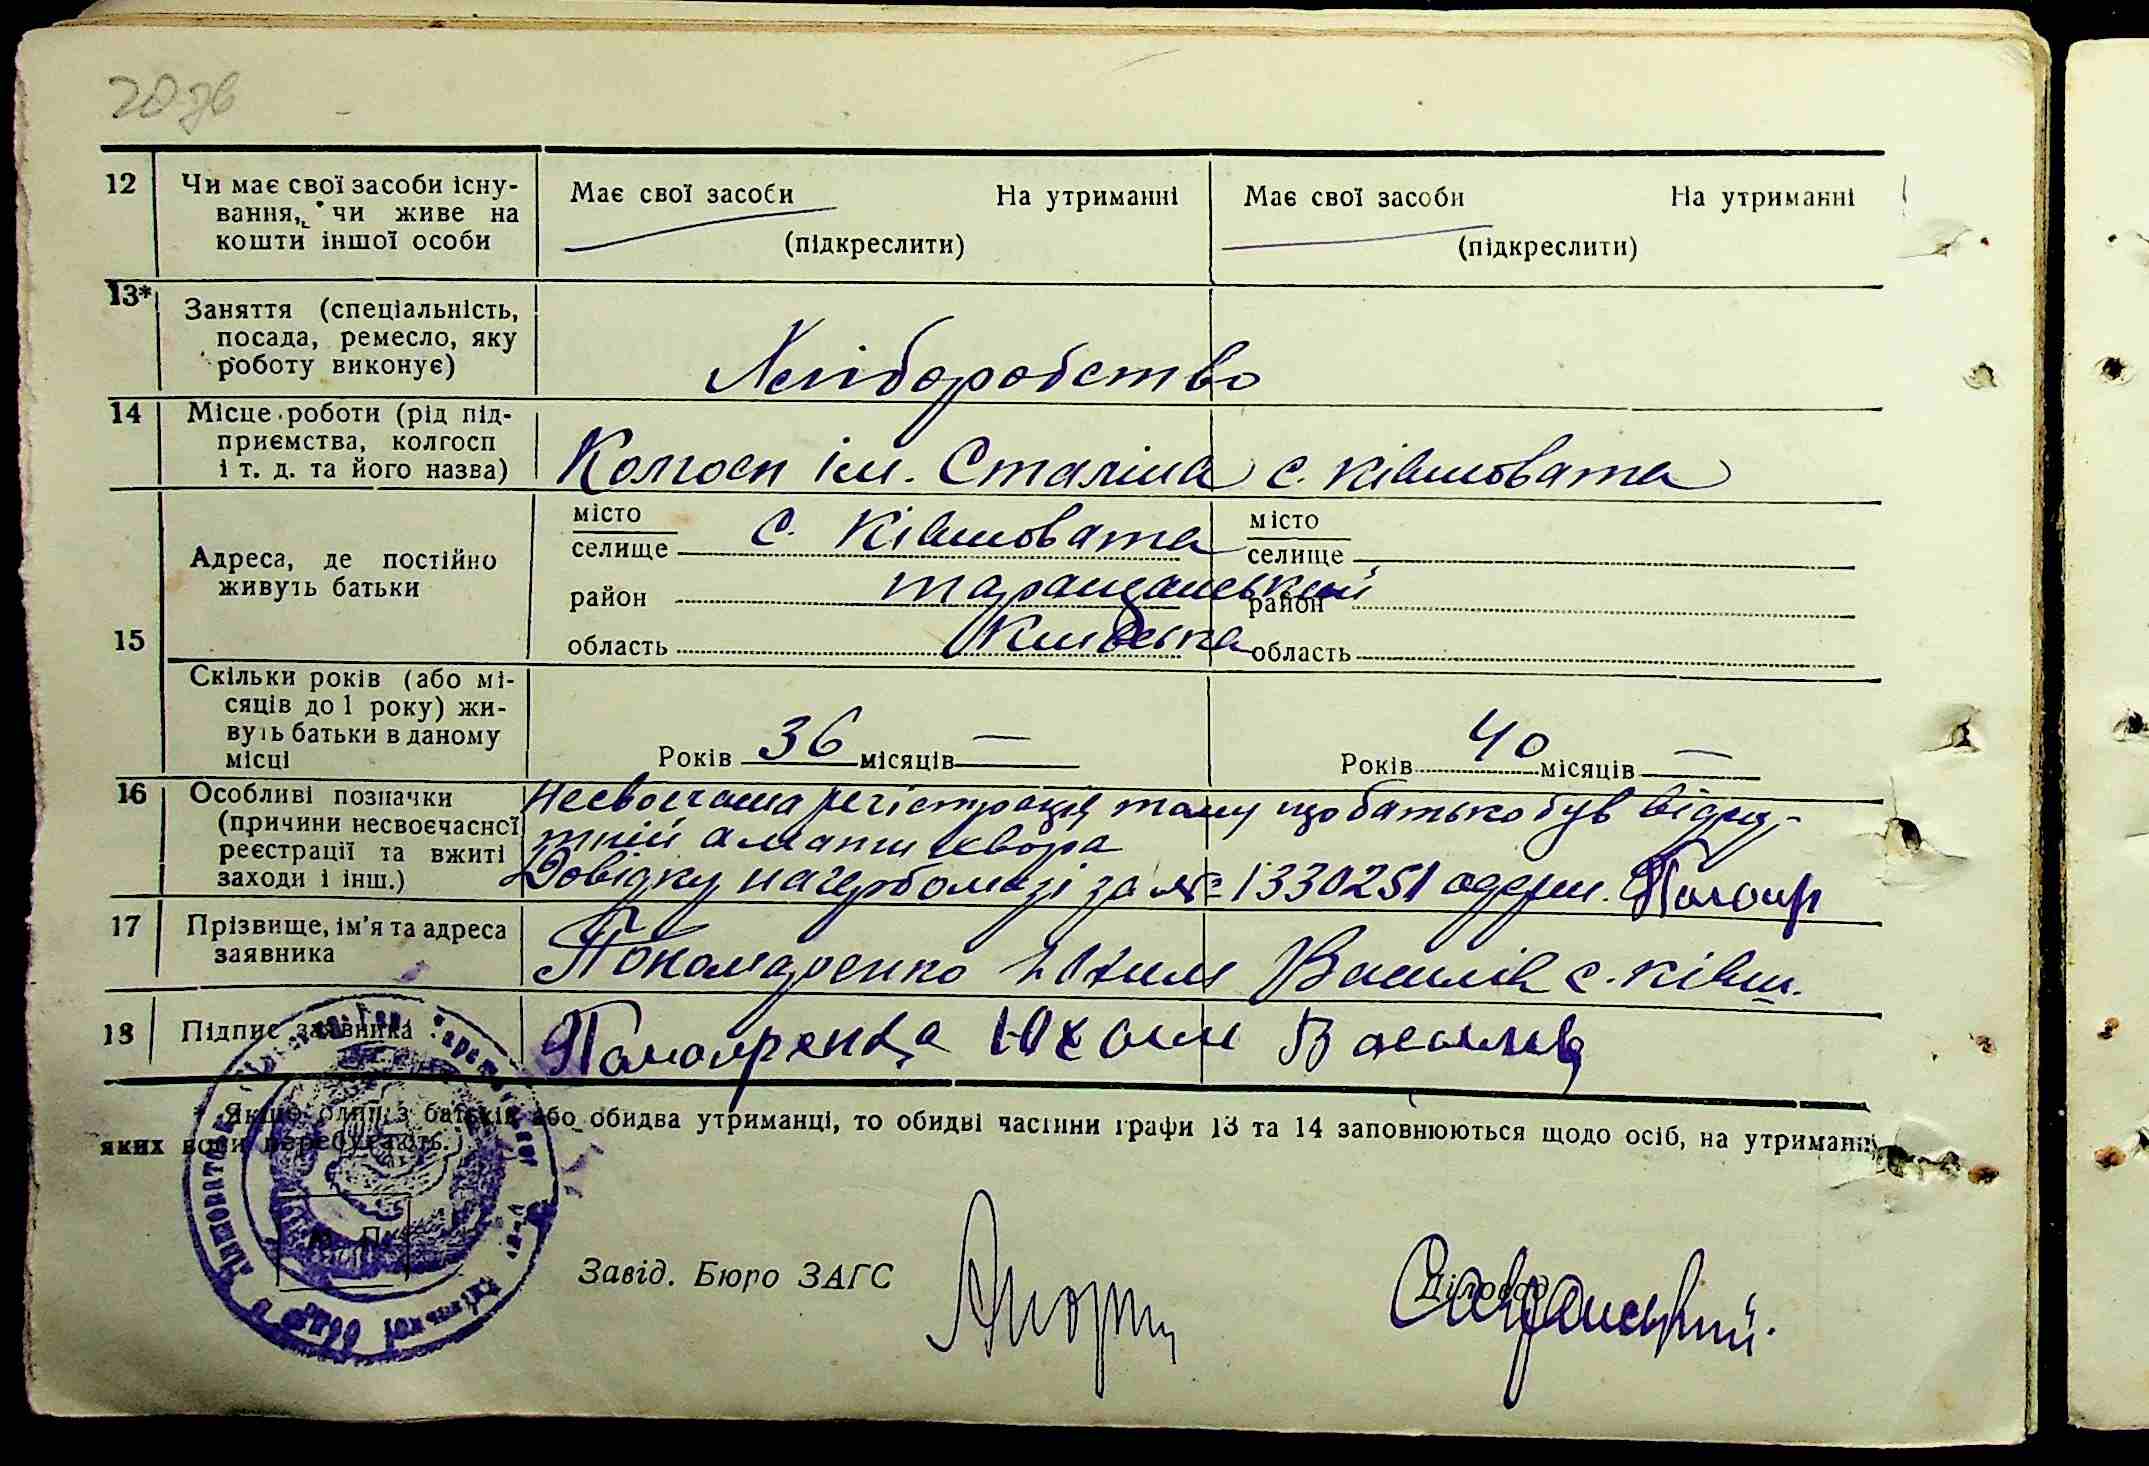 20 зв
12 Чи має свої засоби існу-
вання, чи живе на
кошти іншої особи
Має свої засоби На утриманні
(підкреслити)
Має свої засоби На утриманні
(підкреслити)
13* Заняття (спеціальність,
посада, ремесло, яку
роботу виконує)
Хліборобство
14 Місце роботи (рід під-
приємства, колгосп
і т. д. та його назва)
Колгосп ім. Сталіна с. Ківшовата
15 Адреса, де постійно
живуть батьки
місто
селище с. Ківшовата
район таращанський
область Київська
місто
селище
район
область
Скільки років (або мі-
сяців до 1 року) жи-
вуть батьки в даному
місці
Років 36 місяців —
Років 40 місяців —
16 Особливі позначки
(причини несвоєчасної
реєстрації та вжиті
заходи і інш.)
Несвоєчасна регістрація тому що батько був відсу-
тній а мати хвора
Довідку на гербомазі за № 1330251 одерж.
17 Прізвище, ім'я та адреса
заявника
Пономаренко Юхим Василів с. Ківш.
18 Підпис заявника
Юхом Василив
* Якщо один з батьків або обидва утриманці, то обидві частини графи 13 та 14 заповнюються щодо осіб, на утриманні
яких вони перебувають.
М. П.
Завід. Бюро ЗАГС
Діловод